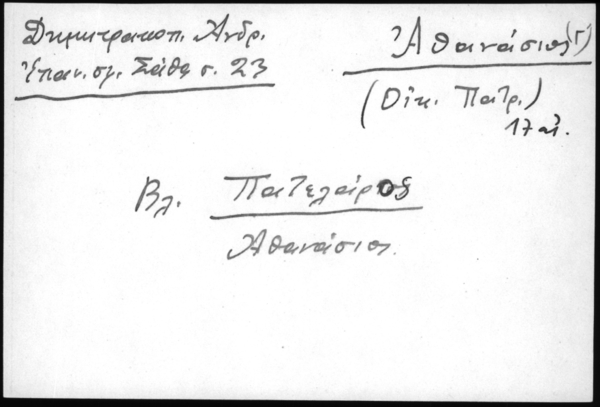 Δημητρακοπ. Ἀνδρ.
Ἐπαν. σφ. Σάθα σ. 23
Ἀθανάσιος (Γ)
(Οἰκ. Πατρ.)
17 αἰ.
Βλ. Πατελάρος
Ἀθανάσιος.